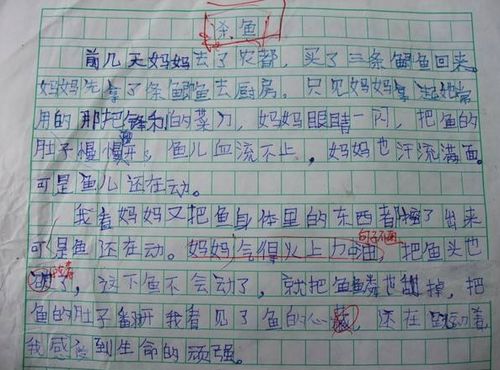 杀鱼
前几天妈妈去了农都，买了三条鲫鱼回来。
妈妈先拿了条鲫鱼去厨房。只见妈妈拿起她常
用的那把锋利的菜刀，妈妈眼睛一闪，把鱼的
肚子慢慢开，鱼儿血流不止，妈妈也汗流满面。
可是鱼儿还在动。
我看妈妈又把鱼身体里的东西都了出来
可是鱼还在动。妈妈气得火上力冲，把鱼头也
了，这下鱼不会动了，就把鱼鳞也掉，把
鱼的肚子翻开我看见了鱼的心，还在动着，
我感到生命的顽强。